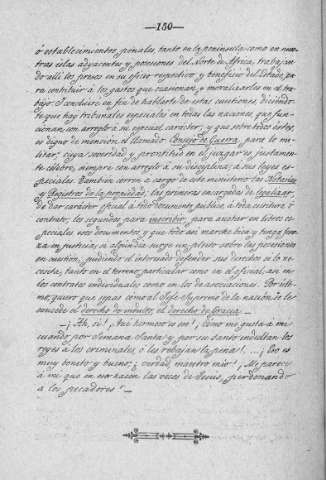 —150—
ó establecimientos penales, tanto en la península como en nues-
tras islas adyacentes y posesiones del Norte de Africa, trabajan-
do allí los presos en su oficio respectivo y beneficio del Estado, pa-
ra contribuir á los gastos que ocasionan, y moralizarles en el tra-
bajo. Y concluiré en fin de hablarte de estas cuestiones, diciéndo-
te que hay tribunales especiales en todas las naciones, que fun-
cionan con arreglo a su especial carácter; y que entre todos éstos,
es digno de mención el llamado Consejo de Guerra, para lo mi-
litar, cuya severidad y prontitud en el juzgar es justamen-
te célebre, siempre con arreglo á su disciplina y á sus leyes es-
peciales. También corren á cargo de este ministerio las Notarías
y Registros de la propiedad; las primeras encargadas de legalizar,
de dar carácter oficial á todo documento público, á toda escritura ó
contrato; los segundos para inscribir, para anotar en libros es-
peciales esos documentos, y que todo así marche bien y tenga fuer-
za en justicia; si algún día surge un pleito sobre las posesiones
en cuestión, pudiendo el interesado defender sus derechos si lo ne-
cesita, tanto en el terreno particular como en el oficial, así en
los contratos individuales como en los de asociaciones. Por últi-
mo, quiero que sepas como al Jefe Supremo de la nación se le
concede el derecho de indulto, el derecho de gracia.—
—¡Ah, sí! ¡Qué hermoso es eso! ¡Cómo me gusta á mí
cuando por Semana Santa y por su Santo indultan los
reyes á los criminales, ó les rebajan la pena!, ...¡Eso es
muy bonito y bueno; ¿verdad, maestro mío? ¡Me parece
á mí que en eso hacen las veces de Jesús, perdonando
a los pecadores!—